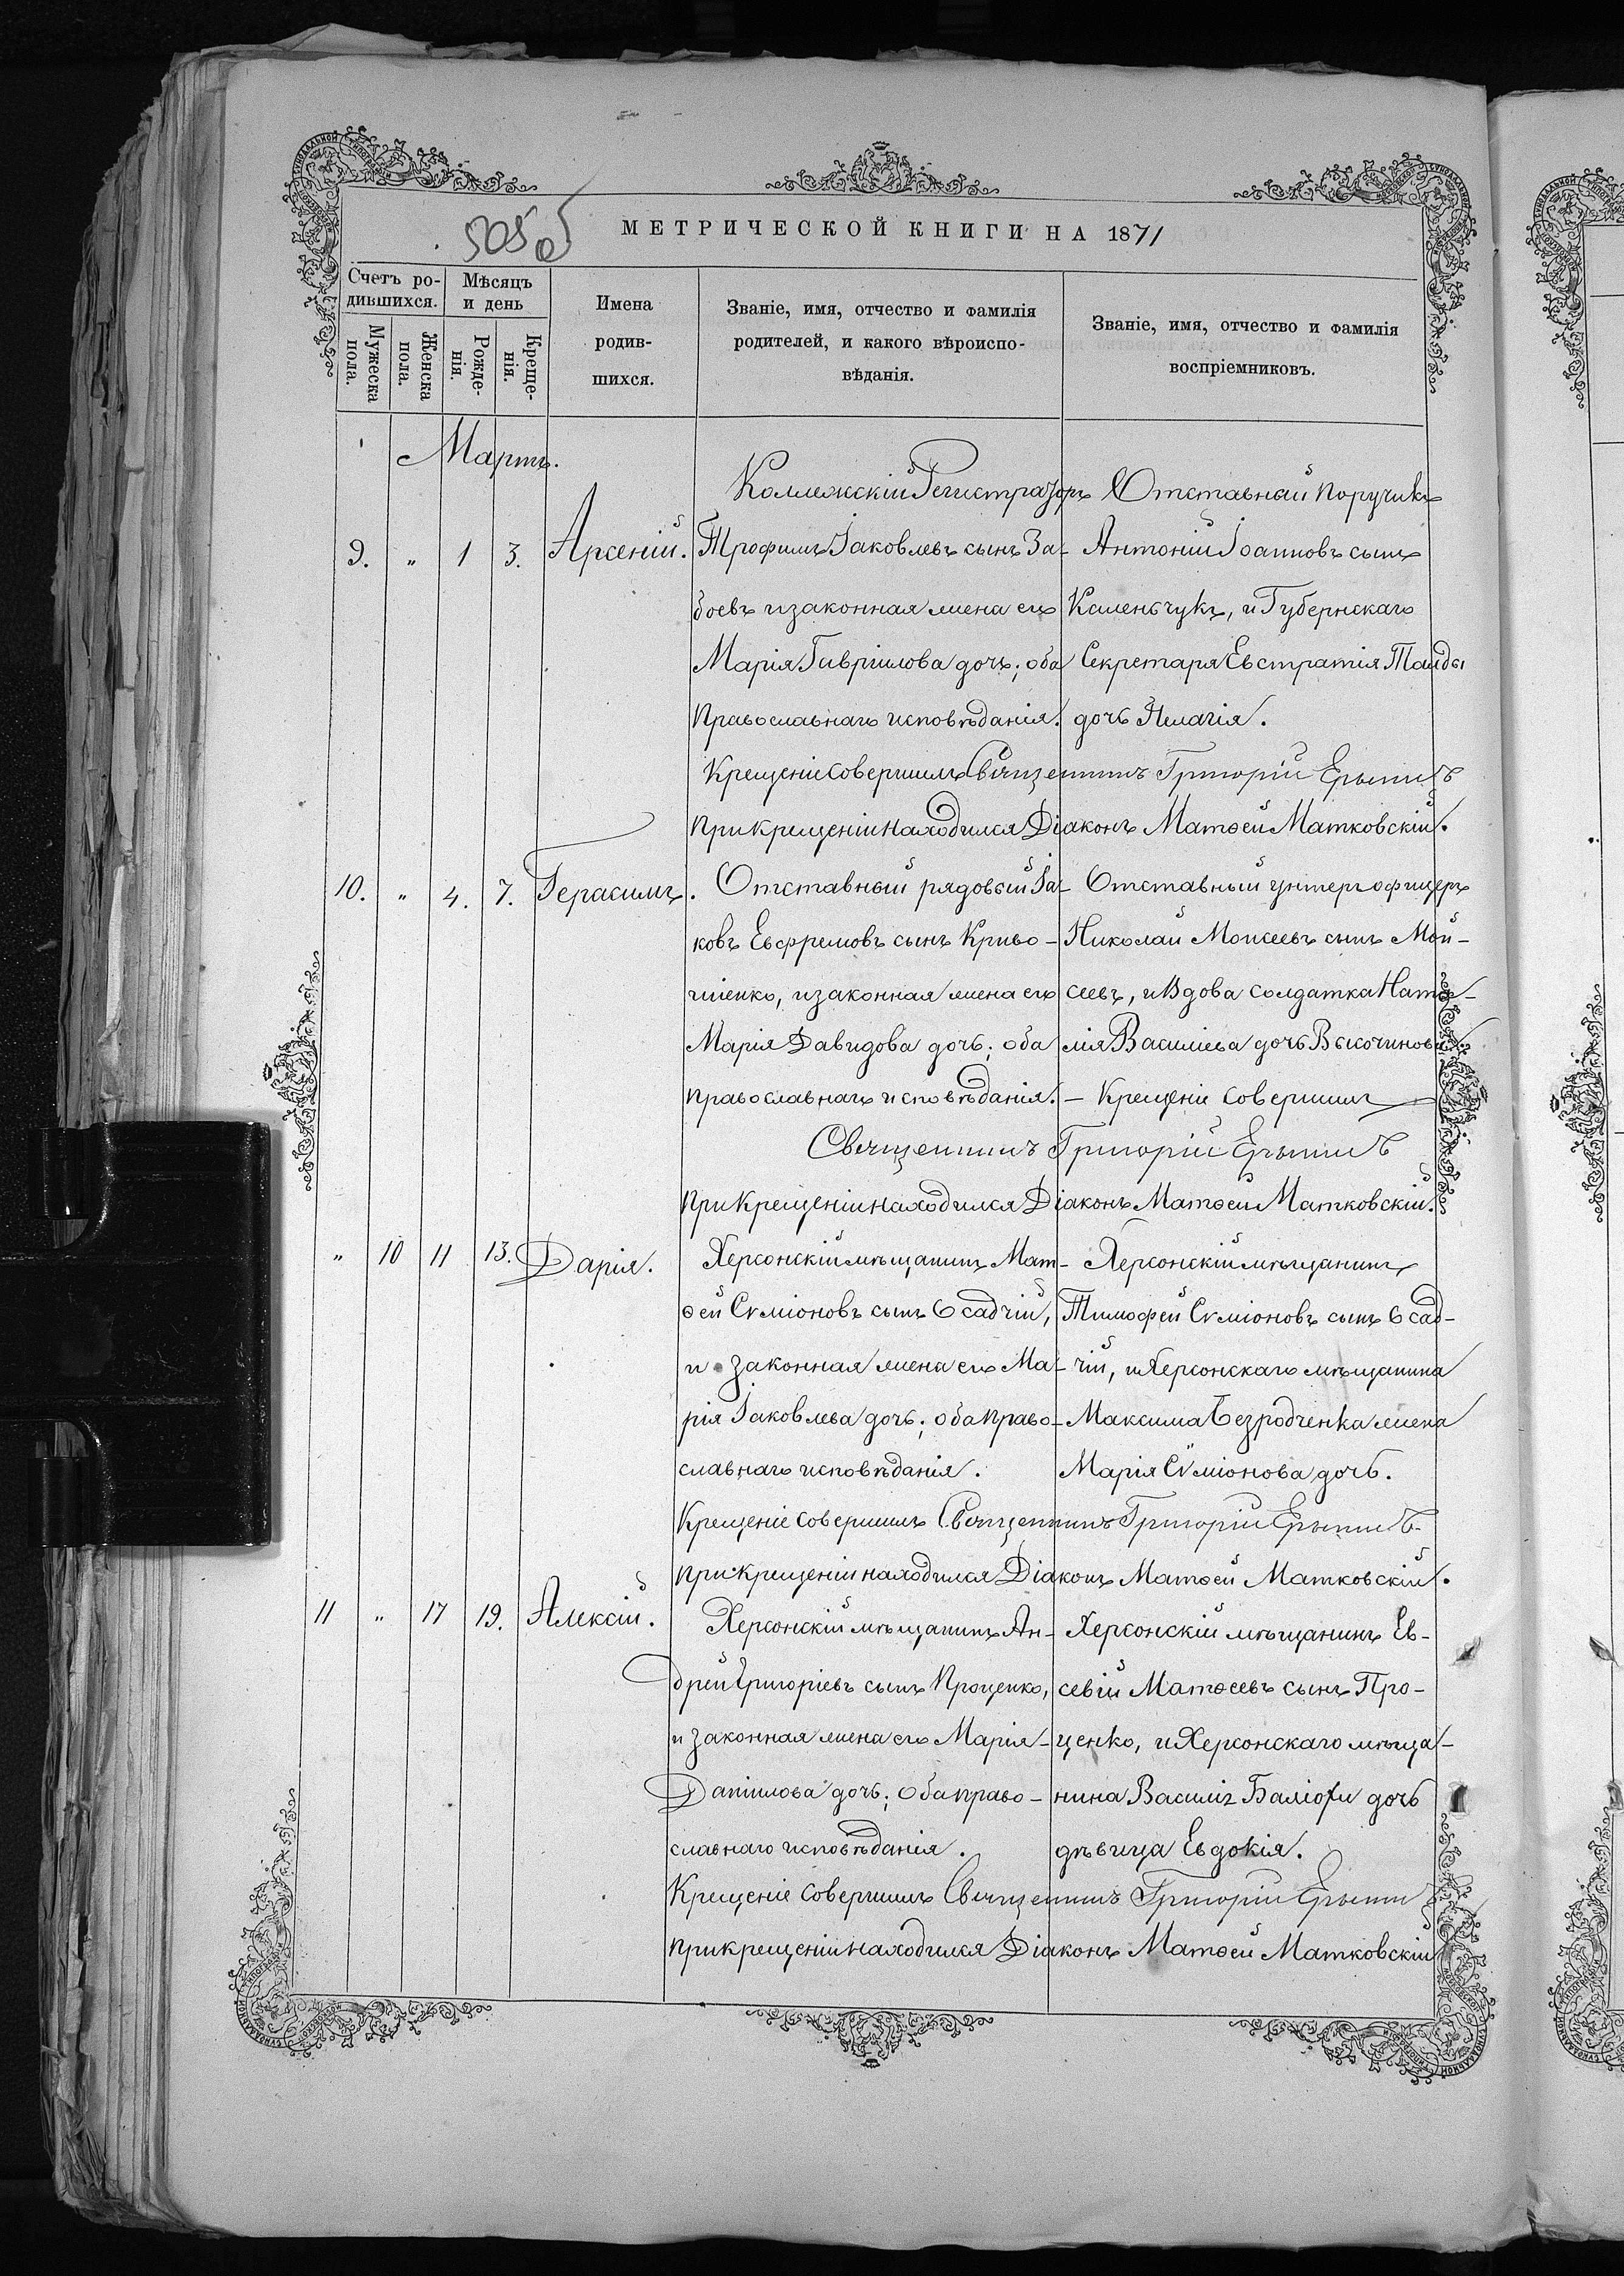 505 об
МЕТРИЧЕСКОЙ КНИГИ НА 1871
Счетъ ро-
дившихся.
Мѣсяцъ
и день
Мужеска
пола.
Женска
пола.
Рожде-
нія.
Креще-
нія.
Имена
родив-
шихся.
Званіе, имя, отчество и фамилія
родителей, и какого вѣроиспо-
вѣданія.
Званіе, имя, отчество и фамилія
воспріемниковъ.
Мартъ.
9. " 1 3. Арсеній.
Коллежскій Регистраторъ
Трофимъ Іаковлевъ сынъ За-
боевъ и законная жена его
Марія Гавріилова дочь; оба
православнаго исповѣданія.
Отставный поручикъ
Антоній Іоанновъ сынъ
Каменьчукъ, и Губернскаго
Секретаря Евстратія
дочь Пелагія.
Крещеніе совершилъ Священникъ Григорій
При крещеніи находился Діаконъ Матѳей Матковскій.
10. " 4. 7. Герасимъ.
Отставный рядовый Іа-
ковъ Евфремовъ сынъ Криво-
шіенко, и законная жена его
Марія Давидова дочь; оба
православнаго исповѣданія. –
Отставный унтеръ офицеръ
Николай Моисеевъ сынъ Мои-
сеевъ, и вдова солдатка Ната-
лія Василіева дочь Высочинова.
Крещеніе совершилъ
Священникъ Григорій
При крещеніи находился Діаконъ Матѳей Матковскій.
" 10 11 13. Дарія.
Херсонскій мѣщанинъ Мат-
ѳей Сѵміоновъ сынъ Осадчій,
и законная жена его Ма-
рія Іаковлева дочь; оба право-
славнаго исповѣданія.
Херсонскій мѣщанинъ
Тимофей Сѵміоновъ сынъ Осад-
чій, и Херсонскаго мѣщанина
Максима Безродченка жена
Марія Сѵміонова дочь.
Крещеніе совершилъ Священникъ Григорій
При крещеніи находился Діаконъ Матѳей Матковскій.
11 " 17 19. Алексій.
Херсонскій мѣщанинъ Ан-
дрей Григоріевъ сынъ Проценко,
и законная жена его Марія
Даніилова дочь; оба право-
славнаго исповѣданія.
Херсонскій мѣщанинъ Ев-
севій Матѳеевъ сынъ Про-
ценко, и Херсонскаго мѣща-
нина Василія дочь
дѣвица Евдокія.
Крещеніе совершилъ Священникъ Григорій
При крещеніи находился Діаконъ Матѳей Матковскій